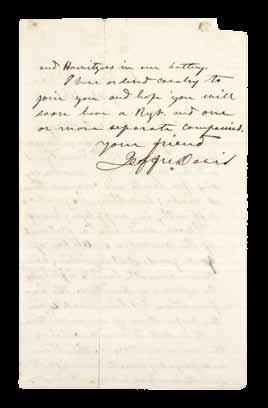 and Howitzers in one battery.
I have ordered cavalry to
join you and hope you will
soon have a Rgt. and one
or more separate companies.
your friend
Jeffn. Davis